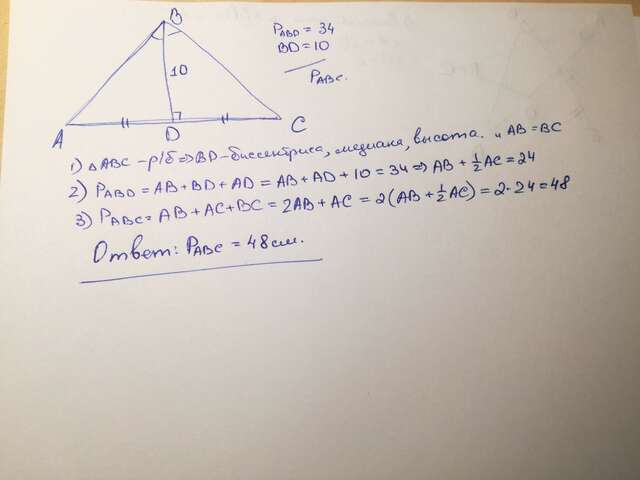 B
P ABD = 34
BD = 10
10
P ABC.
A
D
C
1) △ABC - р/б ⇒ BD - биссектриса, медиана, высота. и AB = BC
2) P ABD = AB + BD + AD = AB + AD + 10 = 34 ⇒ AB + 1/2 AC = 24
3) P ABC = AB + AC + BC = 2AB + AC = 2(AB + 1/2 AC) = 2·24 = 48
Ответ: P ABC = 48 см.